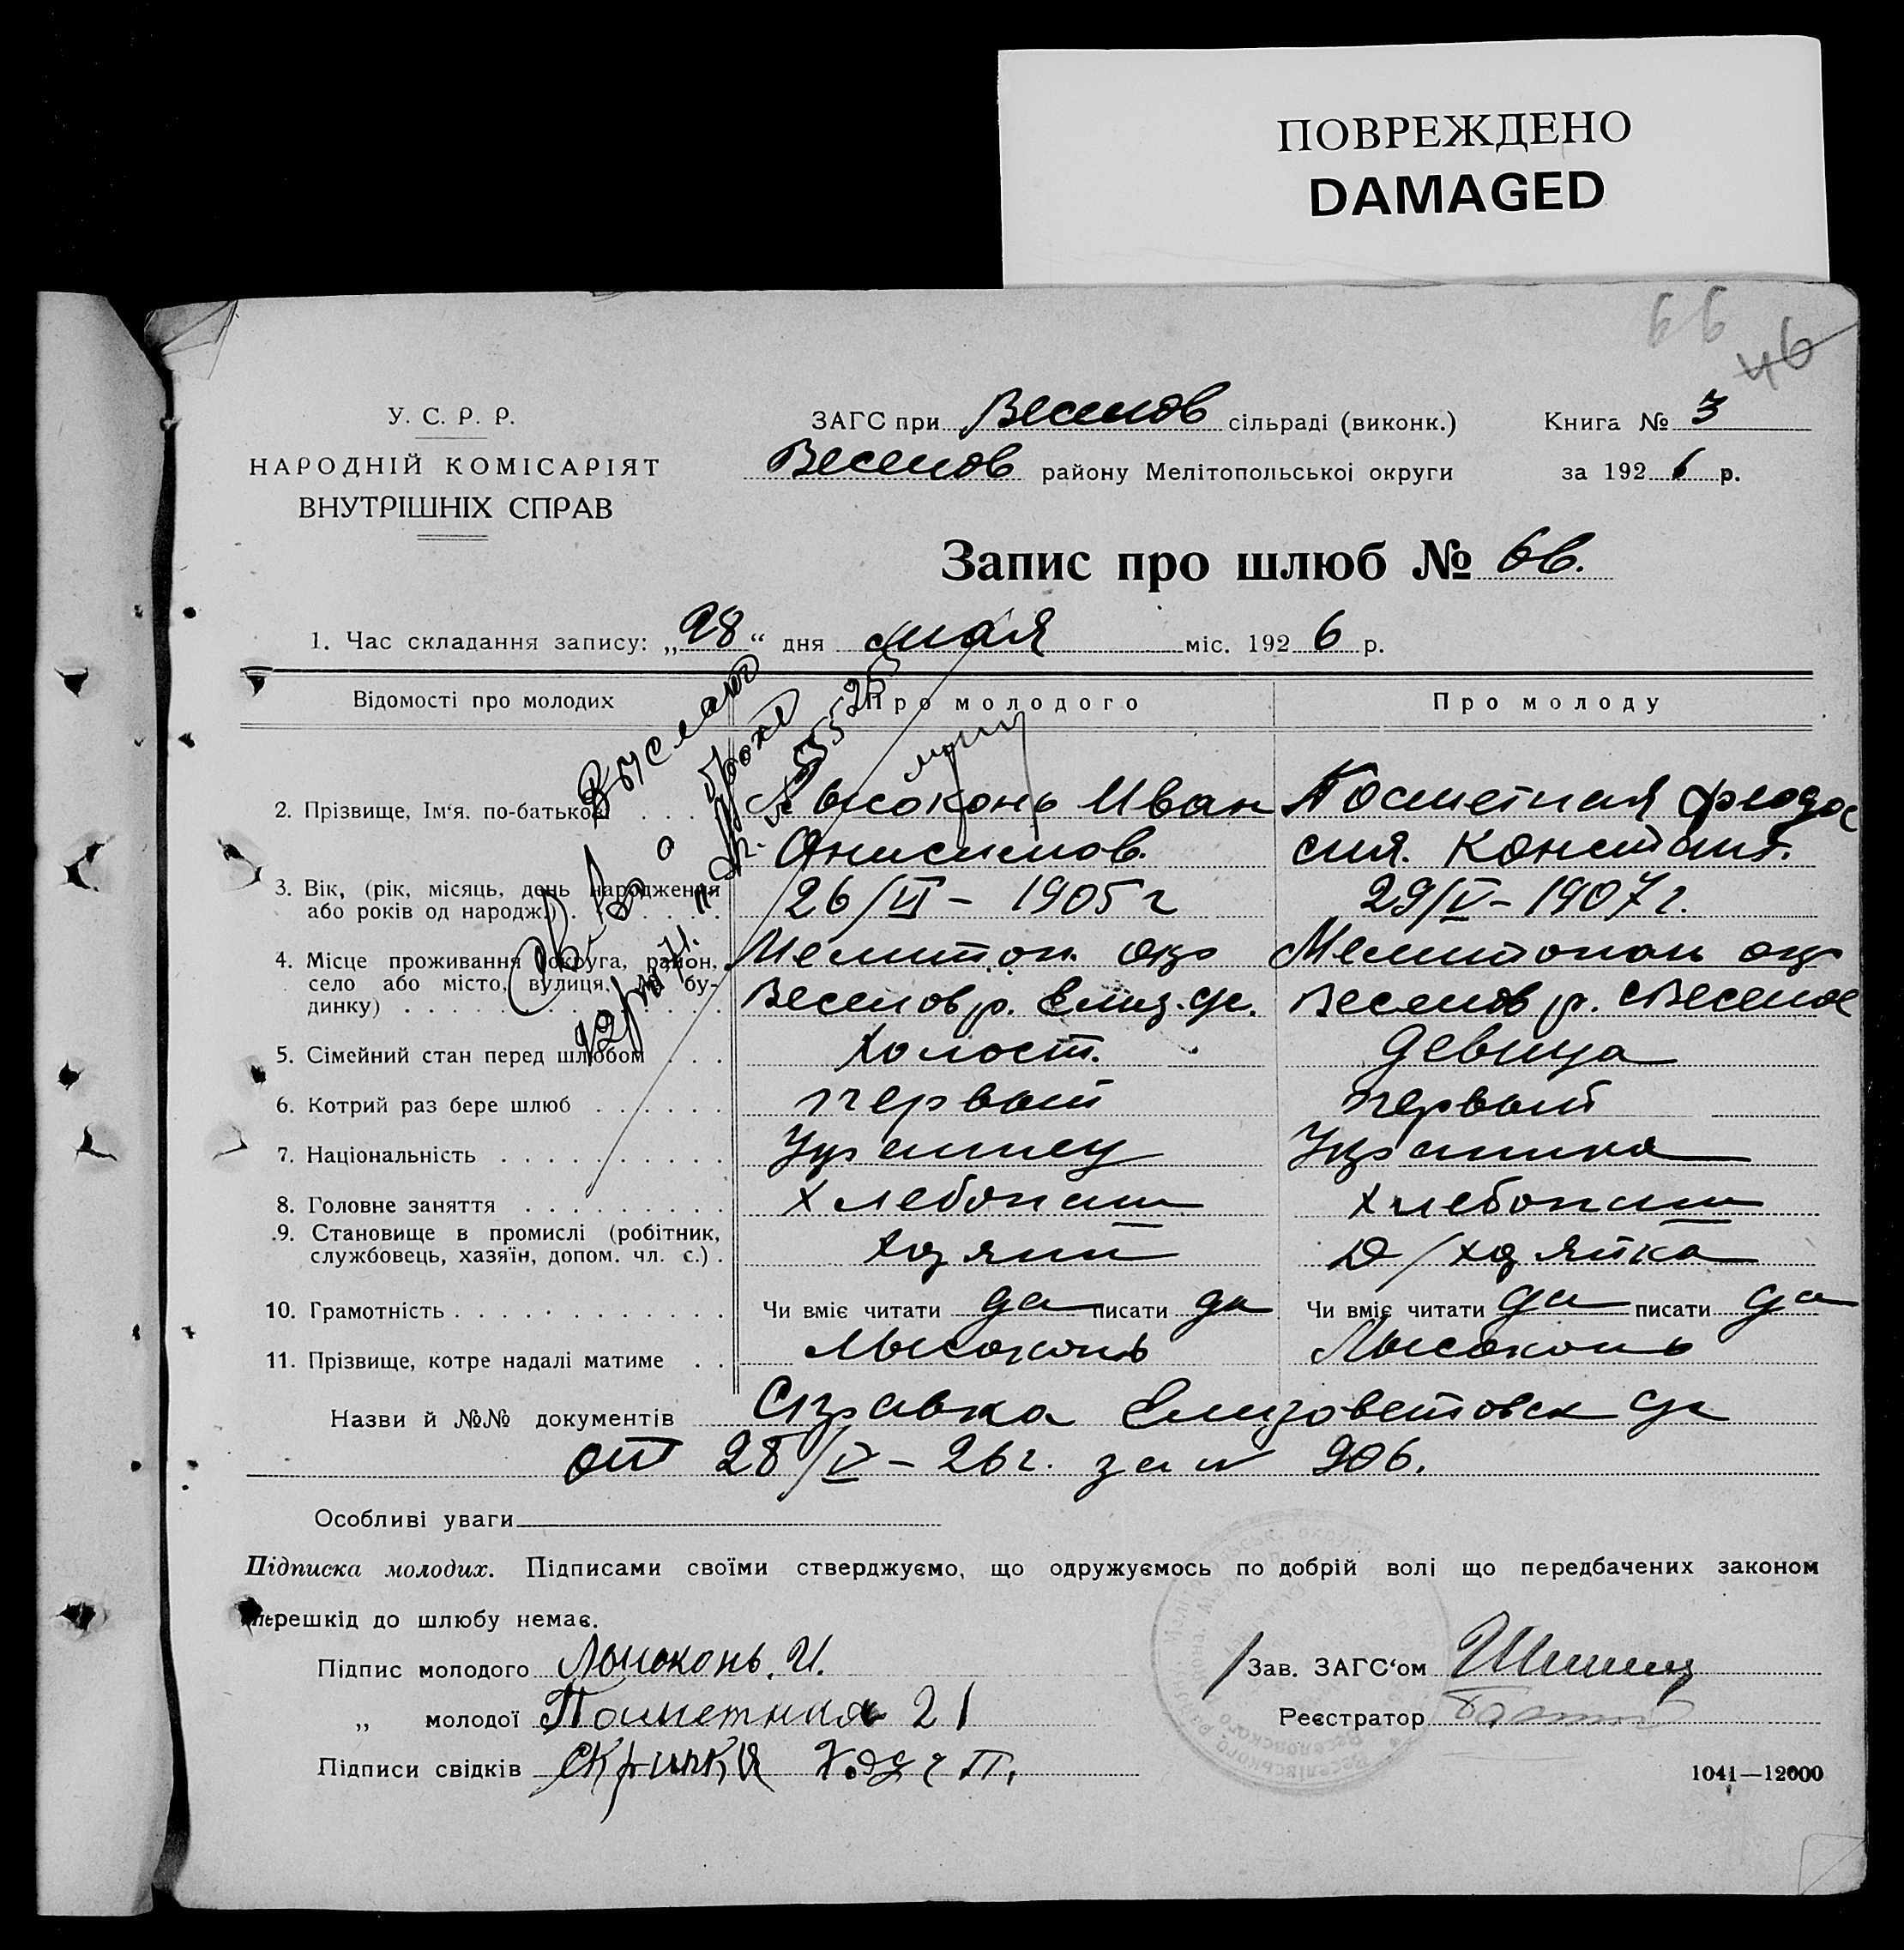 ПОВРЕЖДЕНО
DAMAGED
66
46
У. С. Р. Р.
НАРОДНІЙ КОМІСАРІЯТ
ВНУТРІШНІХ СПРАВ
ЗАГС при Веселов сільраді (виконк.)
Веселов району Мелітопольської округи
Книга № 3
за 1926 р.
Запис про шлюб № 66.
1. Час складання запису: „28“ дня мая міс. 1926 р.
Відомості про молодих
Про молодого
Про молоду
Выслано
о браке
2. Прізвище, Ім‘я. по-батькові . . . Лысоконь Иван Посметная Феодо
Анисимов. сия. Констант.
3. Вік, (рік, місяць, день народження
або років од народж.) . . . . . 26/VI – 1905 г 29/V – 1907 г.
4. Місце проживання (округа, район, Мелитоп. окр Мелитополь окр
село або місто, вулиця, № бу-
динку) . . . . . Веселов р. Елиз. с/с. Веселов р. с Веселое
5. Сімейний стан перед шлюбом . . . Холост. девица
6. Котрий раз бере шлюб . . . . . . первый первый
7. Національність . . . . . . . . . . Украинец Украинка
8. Головне заняття . . . . . . . . . Хлебопаш Хлебопаш
9. Становище в промислі (робітник,
службовець, хазяїн, допом. чл. с.) . Хозяин д/хозяйка
10. Грамотність . . . . . . . . . . . . Чи вміє читати да писати да Чи вміє читати да писати да
11. Прізвище, котре надалі матиме . . Лысоконь Лысоконь
Назви й №№ документів Справка Елизоветовск с/с
от 28/V – 26 г. за № 906.
Особливі уваги
Підписка молодих. Підписами своїми стверджуємо, що одружуємось по добрій волі що передбачених законом
перешкід до шлюбу немає.
Підпис молодого Лысоконь. И.
„ молодої Посметная
Підписи свідків
Зав. ЗАГС‘ом
Реєстратор
1041—12000